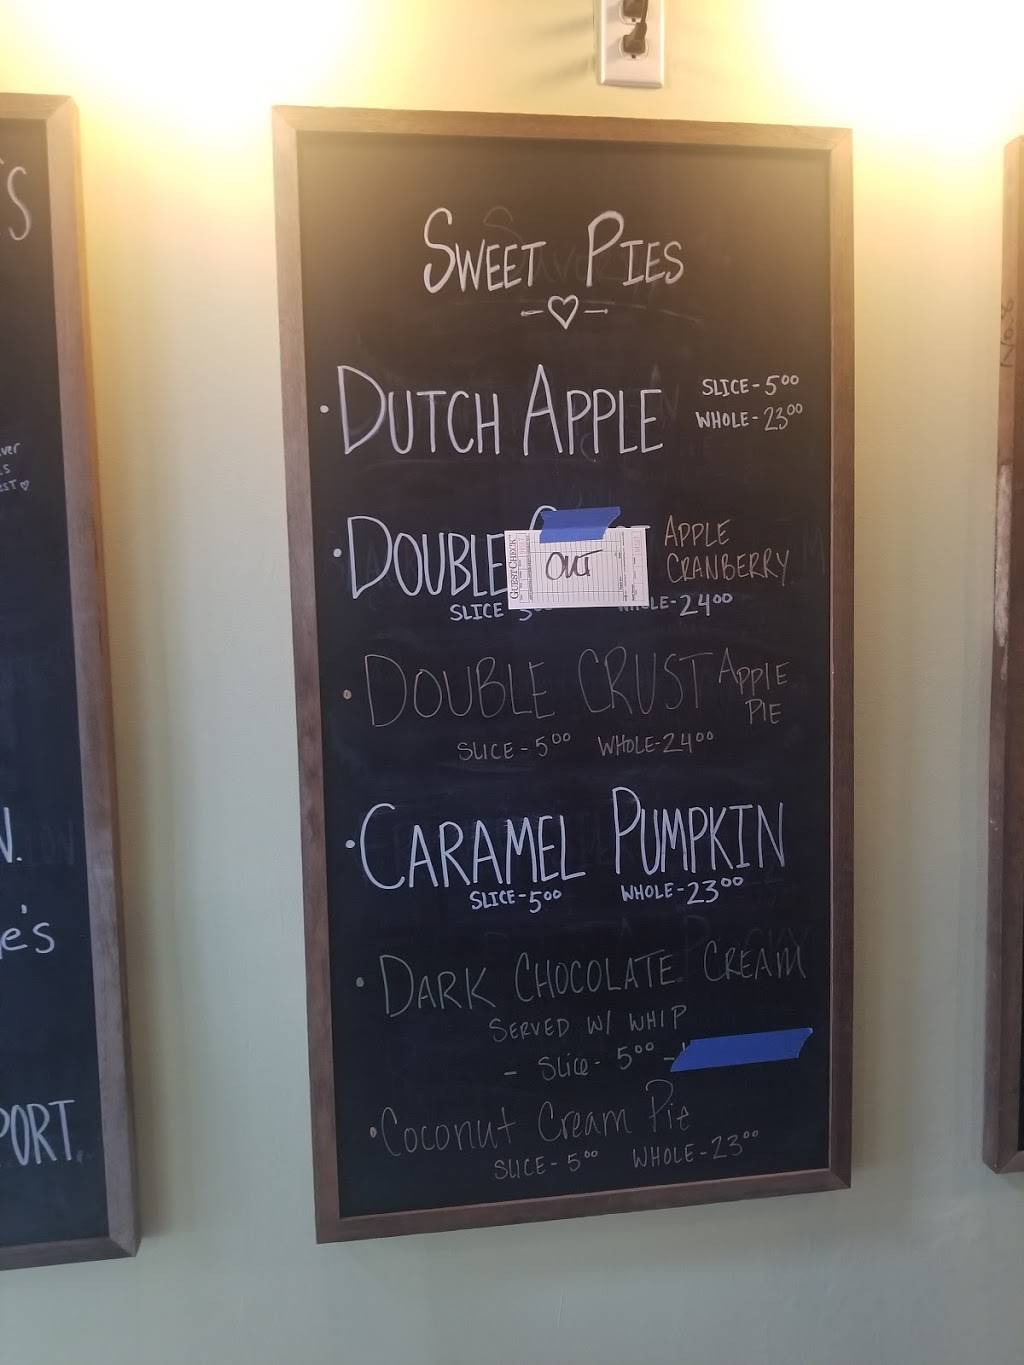 SWEET PIES
• DUTCH APPLE
SLICE - 5.00
WHOLE - 23.00
• DOUBLE
APPLE
CRANBERRY
GUESTCHECK
OUT
SLICE
24.00
• DOUBLE CRUST APPLE
PIE
SLICE - 5.00 WHOLE - 24.00
• CARAMEL PUMPKIN
SLICE - 5.00 WHOLE - 23.00
• DARK CHOCOLATE CREAM
SERVED W/ WHIP
- Slice - 5.00 -
• Coconut Cream Pie
SLICE - 5.00 WHOLE - 23.00
No. 8